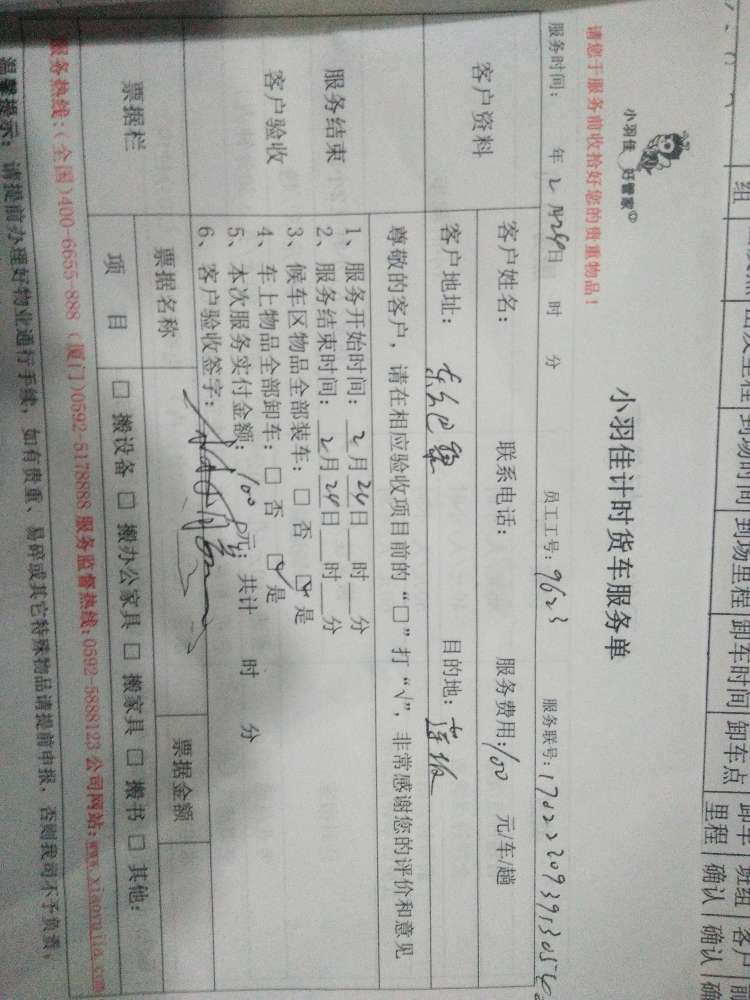 组
到场时间 到场里程 卸车时间 卸车点 卸车里程 班组确认 客户确认
小羽佳 好管家
小羽佳计时货车服务单
请您于服务前收拾好您的贵重物品！
服务时间： 年 2 月24日 时 分 员工工号：9623 服务联号：
客户资料
客户姓名： 联系电话： 服务费用：100 元/车/趟
客户地址： 目的地：
尊敬的客户，请在相应验收项目前的“□”打“√”，非常感谢您的评价和意见
服务结束
客户验收
1、服务开始时间：2月24日__时__分
2、服务结束时间：2月24日__时__分
3、候车区物品全部装车：□ 否 ☑ 是
4、车上物品全部卸车：□ 否 ☑ 是
5、本次服务实付金额：100元；共计 时 分
6、客户验收签字：
票据栏
票据名称 票据金额
项 目 □ 搬设备 □ 搬办公家具 □ 搬家具 □ 搬书 □ 其他：
服务热线：(全国)400-6655-888 (厦门)0592-5178888 服务监督热线：0592-5888123 公司网站：www.xiaoyujia.com
温馨提示：请提前办理好物业通行手续，如有贵重、易碎或其它特殊物品请提前申报，否则我司不予负责。